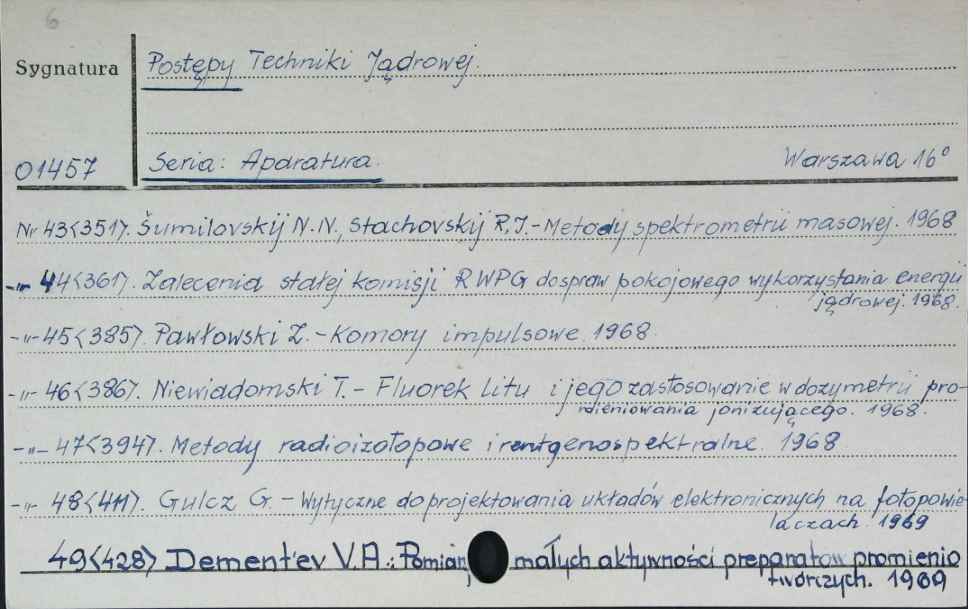 6
Sygnatura Postępy Techniki Jądrowej.
01457 Seria: Aparatura. Warszawa 16°
Nr 43<351>. Šumilovskij N.N., Stachovskij R.J. - Metody spektrometrii masowej. 1968
-"- 44<361>. Zalecenia stałej komisji RWPG do spraw pokojowego wykorzystania energii
jądrowej. 1968.
-"- 45<385>. Pawłowski Z. - Komory impulsowe. 1968.
-"- 46<386>. Niewiadomski T. - Fluorek litu i jego zastosowanie w dozymetrii pro-
mieniowania jonizującego. 1968.
-"- 47<394>. Metody radioizotopowe i rentgenospektralne. 1968
-"- 48<411>. Gulcz G. - Wytyczne do projektowania układów elektronicznych na fotopowie
laczach. 1969
49<428> Dement'ev V.A.: Pomiary małych aktywności preparatów promienio
twórczych. 1969